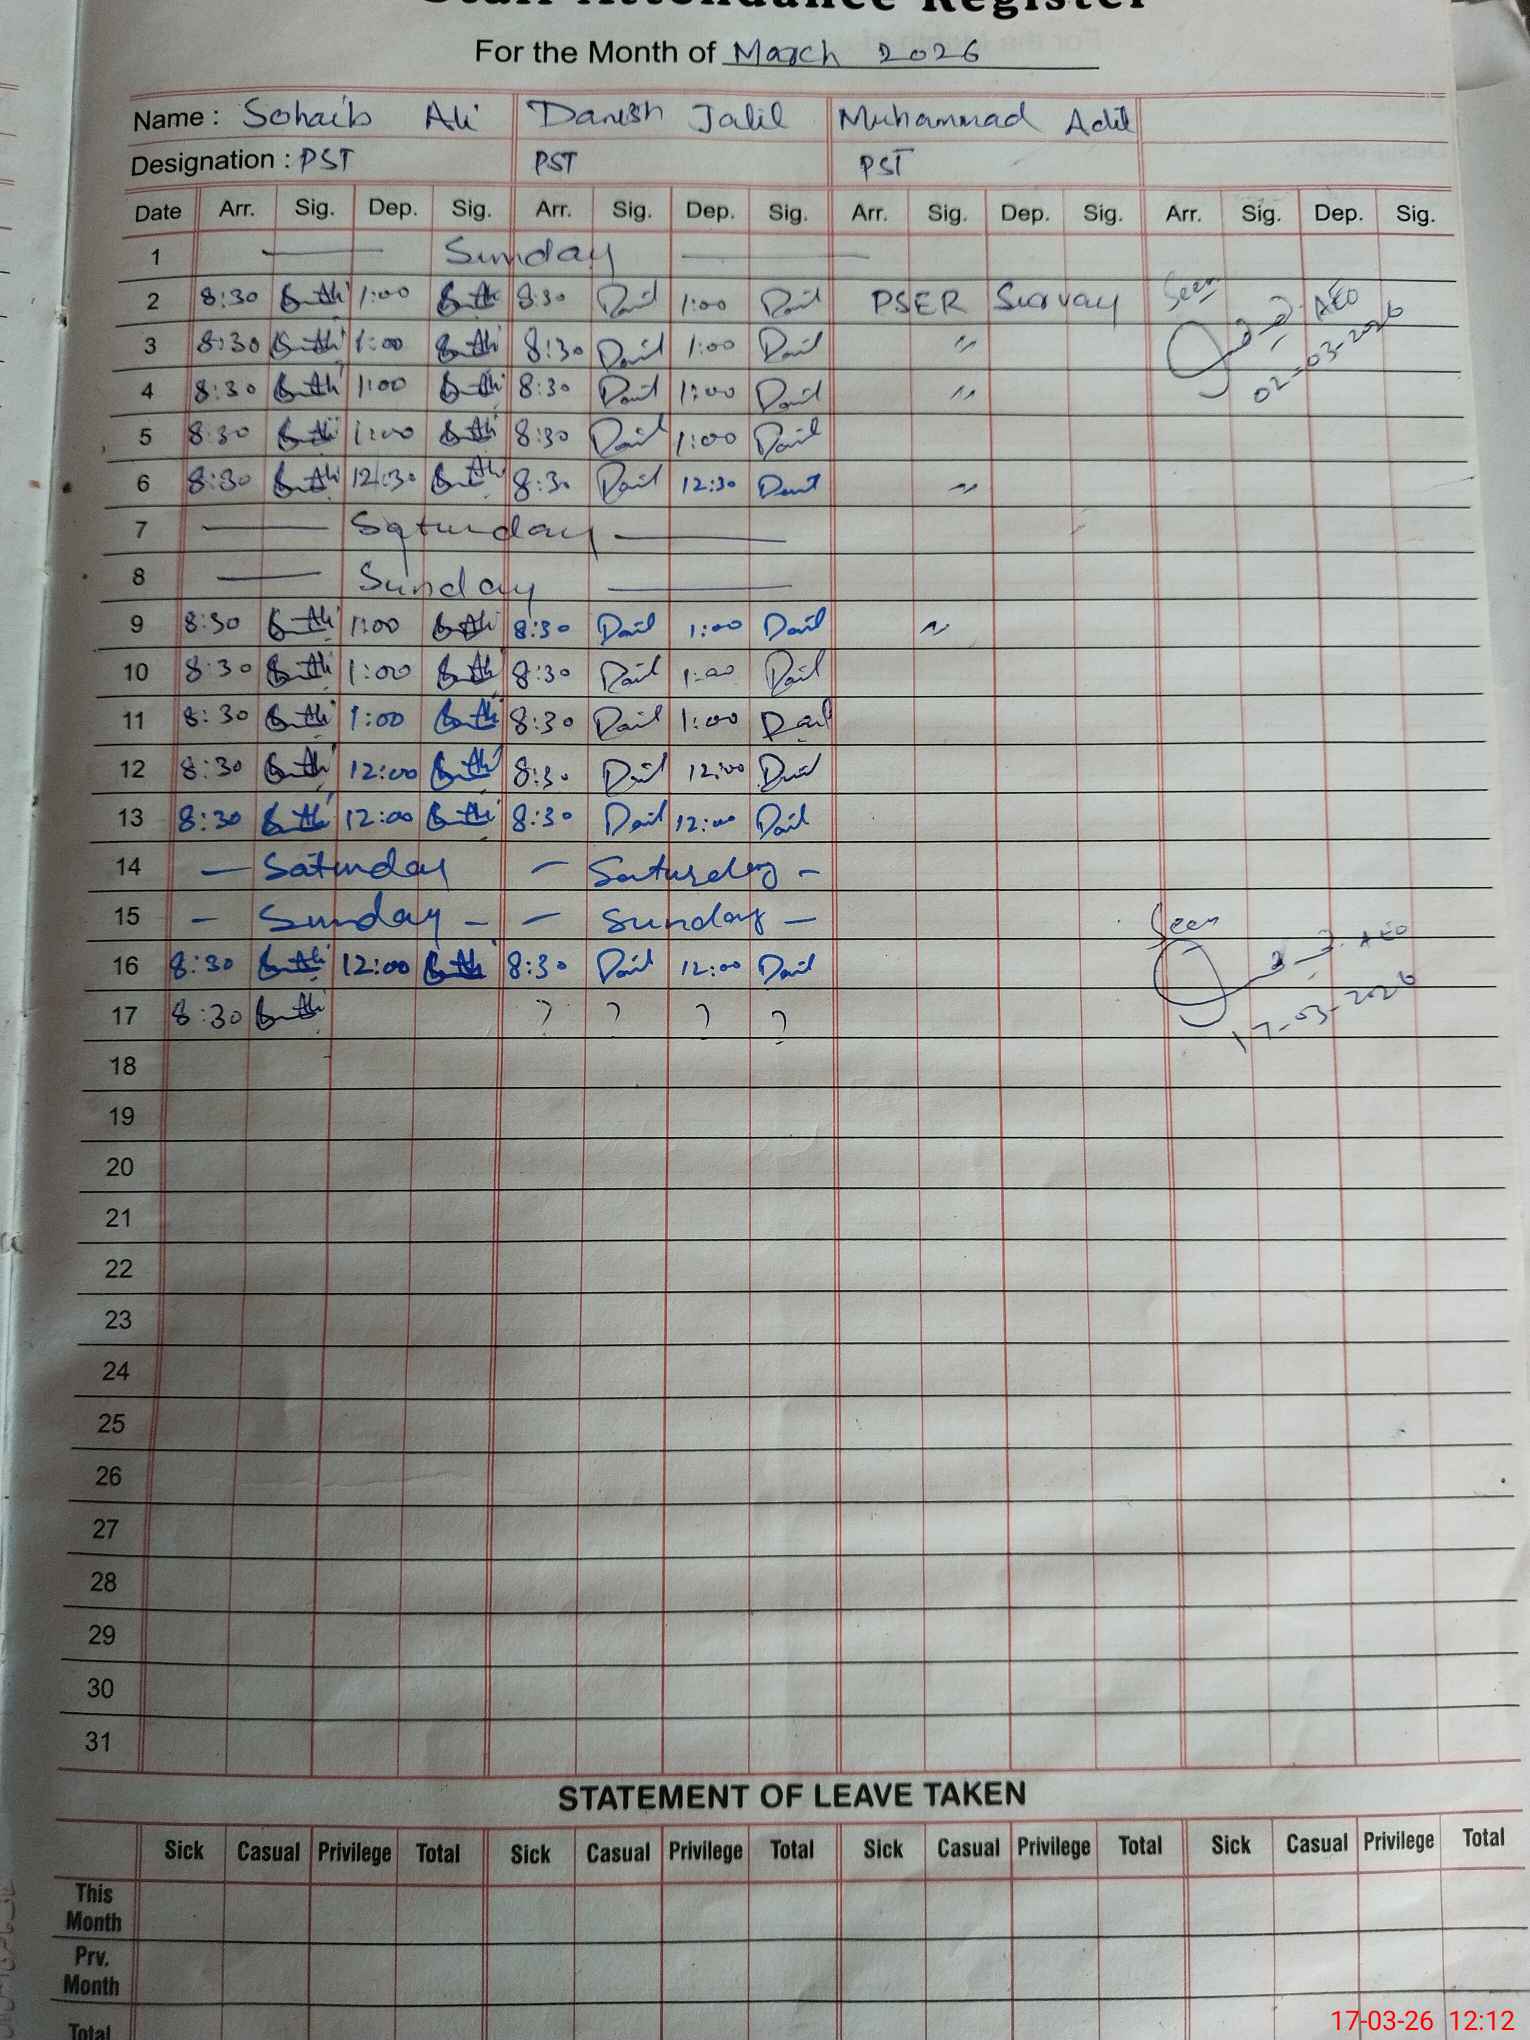 Staff Attendance Register
For the Month of March 2026
Name : Sohaib Ali Danish Jalil Muhammad Adil
Designation : PST PST PST
Date Arr. Sig. Dep. Sig. Arr. Sig. Dep. Sig. Arr. Sig. Dep. Sig. Arr. Sig. Dep. Sig.
1 — Sunday —
2 8:30 1:00 8:30 1:00 PSER Survay Seen AEO
3 8:30 1:00 8:30 1:00 〃 02-03-2026
4 8:30 1:00 8:30 1:00 〃
5 8:30 1:00 8:30 1:00
6 8:30 12:30 8:30 12:30 〃
7 — Saturday —
8 — Sunday —
9 8:30 1:00 8:30 1:00 〃
10 8:30 1:00 8:30 1:00
11 8:30 1:00 8:30 1:00
12 8:30 12:00 8:30 12:00
13 8:30 12:00 8:30 12:00
14 — Saturday — Saturday —
15 — Sunday — — Sunday — Seen
16 8:30 12:00 8:30 12:00 AEO
17 8:30 ? ? ? ? 17-03-2026
18
19
20
21
22
23
24
25
26
27
28
29
30
31
STATEMENT OF LEAVE TAKEN
Sick Casual Privilege Total Sick Casual Privilege Total Sick Casual Privilege Total Sick Casual Privilege Total
This Month
Prv. Month
Total
17-03-26 12:12